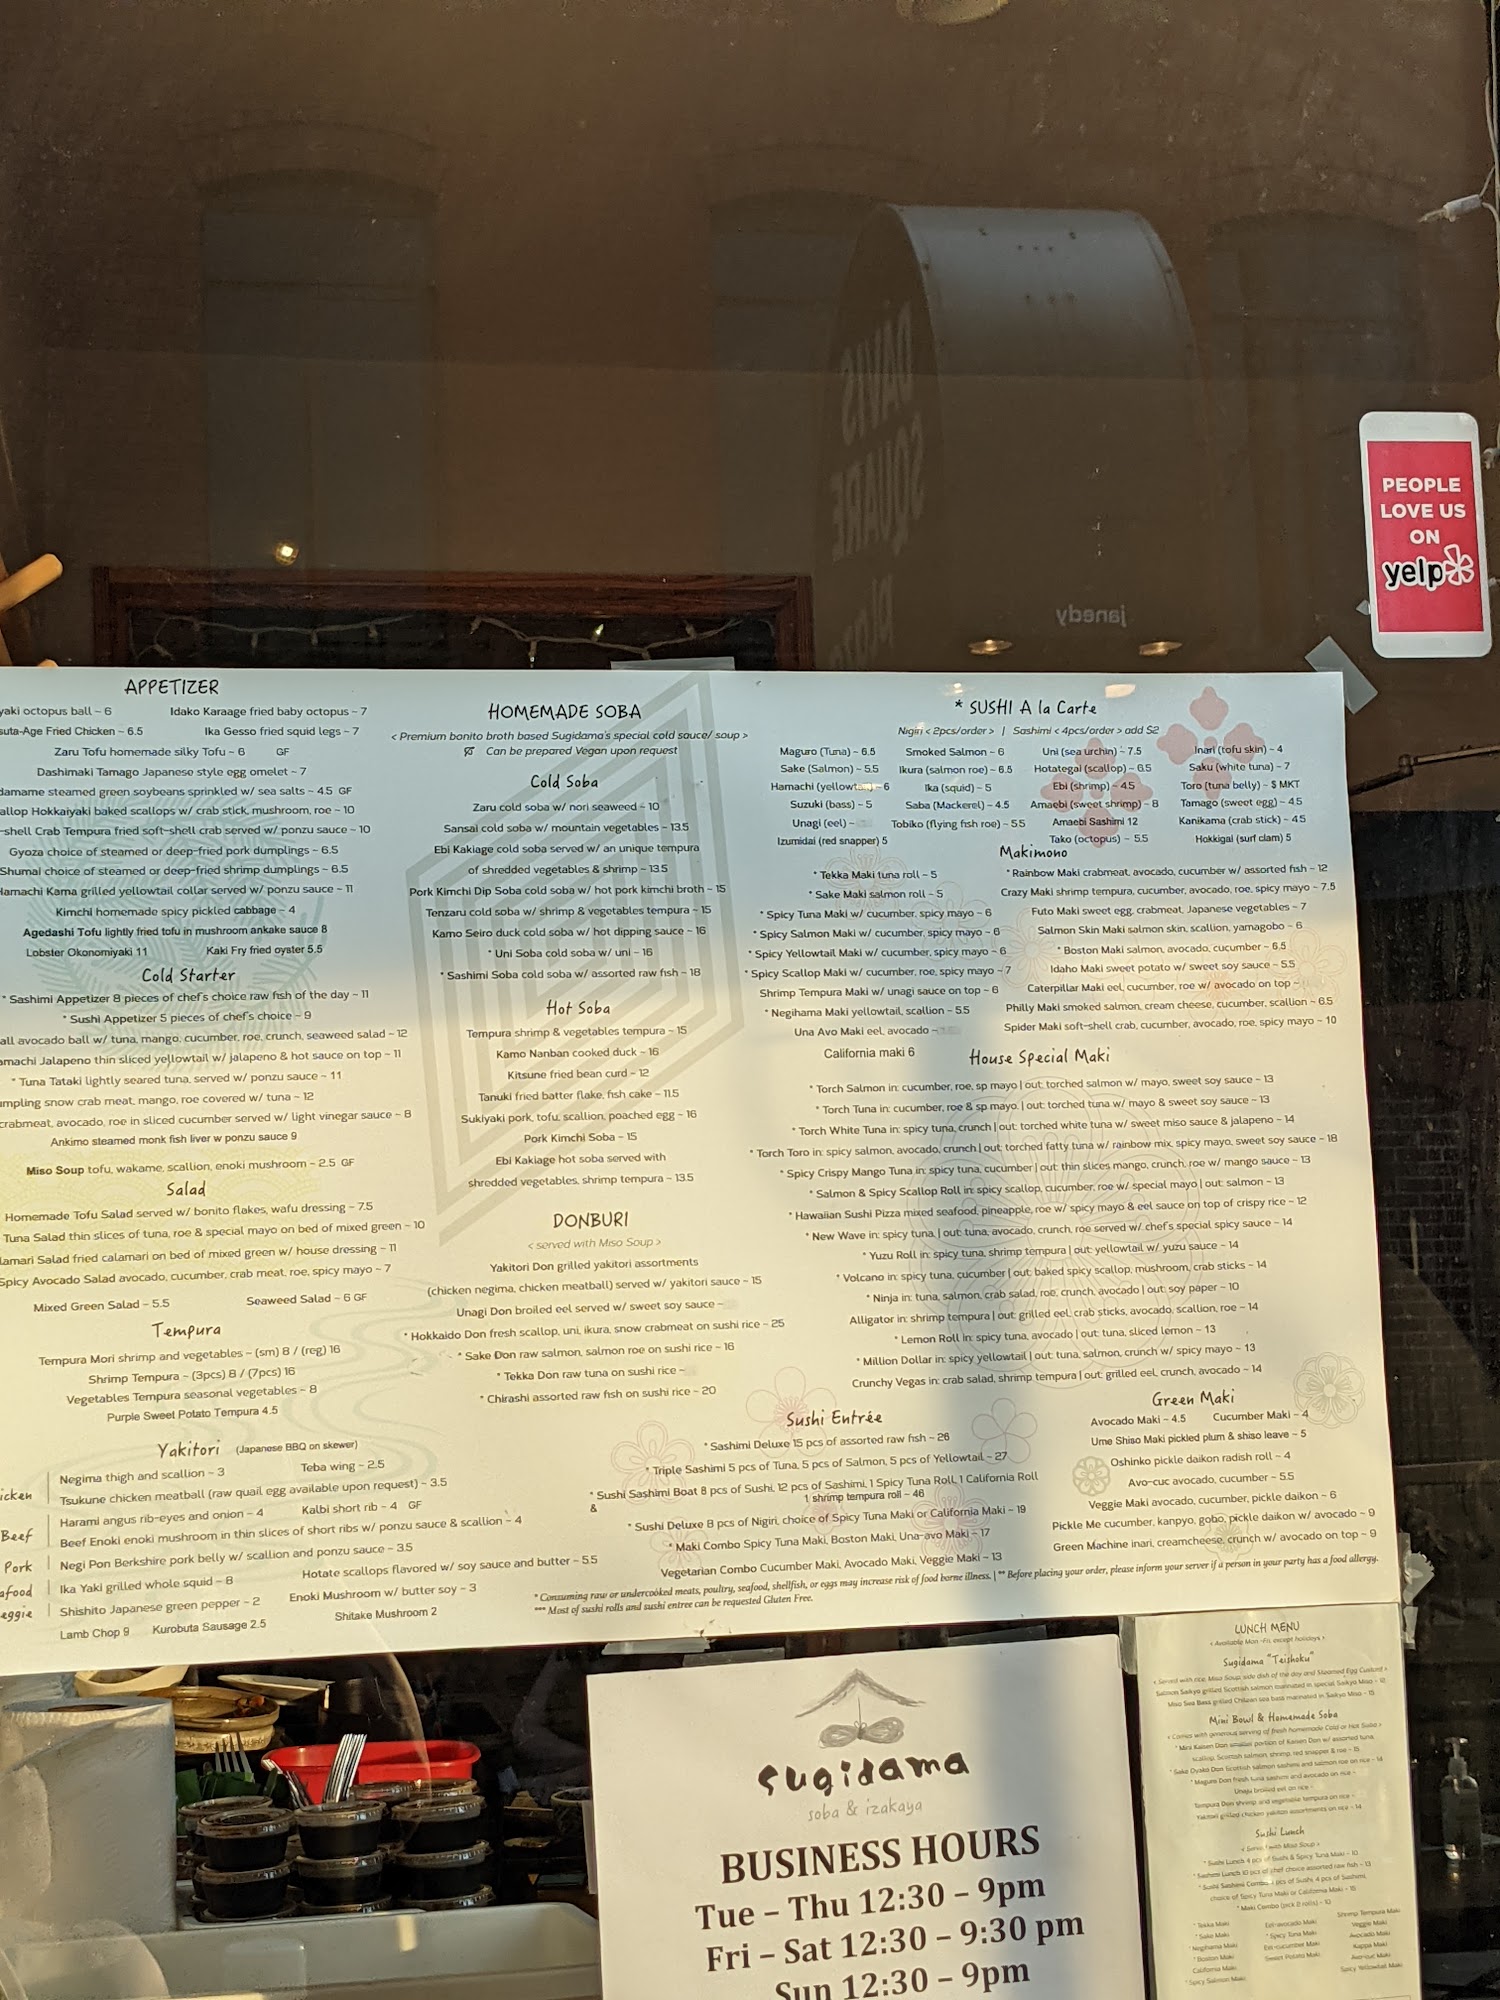 DAVIS
SQUARE
janedy
PEOPLE
LOVE US
ON
yelp
APPETIZER
yaki octopus ball ~ 6 Idako Karaage fried baby octopus ~ 7
suta-Age Fried Chicken ~ 6.5 Ika Gesso fried squid legs ~ 7
Zaru Tofu homemade silky Tofu ~ 6 GF
Dashimaki Tamago Japanese style egg omelet ~ 7
damame steamed green soybeans sprinkled w/ sea salts ~ 4.5 GF
allop Hokkaiyaki baked scallops w/ crab stick, mushroom, roe ~ 10
-shell Crab Tempura fried soft-shell crab served w/ ponzu sauce ~ 10
Gyoza choice of steamed or deep-fried pork dumplings ~ 6.5
Shumai choice of steamed or deep-fried shrimp dumplings ~ 6.5
Hamachi Kama grilled yellowtail collar served w/ ponzu sauce ~ 11
Kimchi homemade spicy pickled cabbage ~ 4
Agedashi Tofu lightly fried tofu in mushroom ankake sauce 8
Lobster Okonomiyaki 11 Kaki Fry fried oyster 5.5
Cold Starter
* Sashimi Appetizer 8 pieces of chef's choice raw fish of the day ~ 11
* Sushi Appetizer 5 pieces of chef's choice ~ 9
all avocado ball w/ tuna, mango, cucumber, roe, crunch, seaweed salad ~ 12
amachi Jalapeno thin sliced yellowtail w/ jalapeno & hot sauce on top ~ 11
* Tuna Tataki lightly seared tuna, served w/ ponzu sauce ~ 11
umpling snow crab meat, mango, roe covered w/ tuna ~ 12
crabmeat, avocado, roe in sliced cucumber served w/ light vinegar sauce ~ 8
Ankimo steamed monk fish liver w ponzu sauce 9
Miso Soup tofu, wakame, scallion, enoki mushroom ~ 2.5 GF
Salad
Homemade Tofu Salad served w/ bonito flakes, wafu dressing ~ 7.5
Tuna Salad thin slices of tuna, roe & special mayo on bed of mixed green ~ 10
lamari Salad fried calamari on bed of mixed green w/ house dressing ~ 11
Spicy Avocado Salad avocado, cucumber, crab meat, roe, spicy mayo ~ 7
Mixed Green Salad ~ 5.5 Seaweed Salad ~ 6 GF
Tempura
Tempura Mori shrimp and vegetables ~ (sm) 8 / (reg) 16
Shrimp Tempura ~ (3pcs) 8 / (7pcs) 16
Vegetables Tempura seasonal vegetables ~ 8
Purple Sweet Potato Tempura 4.5
Yakitori (Japanese BBQ on skewer)
icken Negima thigh and scallion ~ 3 Teba wing ~ 2.5
Tsukune chicken meatball (raw quail egg available upon request) ~ 3.5
Beef Harami angus rib-eyes and onion ~ 4 Kalbi short rib ~ 4 GF
Beef Enoki enoki mushroom in thin slices of short ribs w/ ponzu sauce & scallion ~ 4
Pork Negi Pon Berkshire pork belly w/ scallion and ponzu sauce ~ 3.5
afood Ika Yaki grilled whole squid ~ 8 Hotate scallops flavored w/ soy sauce and butter ~ 5.5
eggie Shishito Japanese green pepper ~ 2 Enoki Mushroom w/ butter soy ~ 3
Shitake Mushroom 2
Lamb Chop 9 Kurobuta Sausage 2.5
HOMEMADE SOBA
< Premium bonito broth based Sugidama's special cold sauce/ soup >
Can be prepared Vegan upon request
Cold Soba
Zaru cold soba w/ nori seaweed ~ 10
Sansai cold soba w/ mountain vegetables ~ 13.5
Ebi Kakiage cold soba served w/ an unique tempura
of shredded vegetables & shrimp ~ 13.5
Pork Kimchi Dip Soba cold soba w/ hot pork kimchi broth ~ 15
Tenzaru cold soba w/ shrimp & vegetables tempura ~ 15
Kamo Seiro duck cold soba w/ hot dipping sauce ~ 16
* Uni Soba cold soba w/ uni ~ 16
* Sashimi Soba cold soba w/ assorted raw fish ~ 18
Hot Soba
Tempura shrimp & vegetables tempura ~ 15
Kamo Nanban cooked duck ~ 16
Kitsune fried bean curd ~ 12
Tanuki fried batter flake, fish cake ~ 11.5
Sukiyaki pork, tofu, scallion, poached egg ~ 16
Pork Kimchi Soba ~ 15
Ebi Kakiage hot soba served with
shredded vegetables, shrimp tempura ~ 13.5
DONBURI
< served with Miso Soup >
Yakitori Don grilled yakitori assortments
(chicken negima, chicken meatball) served w/ yakitori sauce ~ 15
Unagi Don broiled eel served w/ sweet soy sauce ~
* Hokkaido Don fresh scallop, uni, ikura, snow crabmeat on sushi rice ~ 25
* Sake Don raw salmon, salmon roe on sushi rice ~ 16
* Tekka Don raw tuna on sushi rice ~
* Chirashi assorted raw fish on sushi rice ~ 20
* SUSHI A la Carte
Nigiri < 2pcs/order > | Sashimi < 4pcs/order > add $2
Maguro (Tuna) ~ 6.5 Smoked Salmon ~ 6 Uni (sea urchin) ~ 7.5 Inari (tofu skin) ~ 4
Sake (Salmon) ~ 5.5 Ikura (salmon roe) ~ 6.5 Hotategai (scallop) ~ 6.5 Saku (white tuna) ~ 7
Hamachi (yellowta ~ 6 Ika (squid) ~ 5 Ebi (shrimp) ~ 4.5 Toro (tuna belly) ~ $ MKT
Suzuki (bass) ~ 5 Saba (Mackerel) ~ 4.5 Amaebi (sweet shrimp) ~ 8 Tamago (sweet egg) ~ 4.5
Unagi (eel) ~ Tobiko (flying fish roe) ~ 5.5 Amaebi Sashimi 12 Kanikama (crab stick) ~ 4.5
Izumidai (red snapper) 5 Tako (octopus) ~ 5.5 Hokkigai (surf clam) 5
Makimono
* Tekka Maki tuna roll ~ 5
* Sake Maki salmon roll ~ 5
* Spicy Tuna Maki w/ cucumber, spicy mayo ~ 6
* Spicy Salmon Maki w/ cucumber, spicy mayo ~ 6
* Spicy Yellowtail Maki w/ cucumber, spicy mayo ~ 6
* Spicy Scallop Maki w/ cucumber, roe, spicy mayo ~ 7
Shrimp Tempura Maki w/ unagi sauce on top ~ 6
* Negihama Maki yellowtail, scallion ~ 5.5
Una Avo Maki eel, avocado ~
California maki 6
* Rainbow Maki crabmeat, avocado, cucumber w/ assorted fish ~ 12
Crazy Maki shrimp tempura, cucumber, avocado, roe, spicy mayo ~ 7.5
Futo Maki sweet egg, crabmeat, Japanese vegetables ~ 7
Salmon Skin Maki salmon skin, scallion, yamagobo ~ 6
* Boston Maki salmon, avocado, cucumber ~ 6.5
Idaho Maki sweet potato w/ sweet soy sauce ~ 5.5
Caterpillar Maki eel, cucumber, roe w/ avocado on top ~
Philly Maki smoked salmon, cream cheese, cucumber, scallion ~ 6.5
Spider Maki soft-shell crab, cucumber, avocado, roe, spicy mayo ~ 10
House Special Maki
* Torch Salmon in: cucumber, roe, sp mayo | out: torched salmon w/ mayo, sweet soy sauce ~ 13
* Torch Tuna in: cucumber, roe & sp mayo, | out: torched tuna w/ mayo & sweet soy sauce ~ 13
* Torch White Tuna in: spicy tuna, crunch | out: torched white tuna w/ sweet miso sauce & jalapeno ~ 14
* Torch Toro in: spicy salmon, avocado, crunch | out: torched fatty tuna w/ rainbow mix, spicy mayo, sweet soy sauce ~ 18
* Spicy Crispy Mango Tuna in: spicy tuna, cucumber | out: thin slices mango, crunch, roe w/ mango sauce ~ 13
* Salmon & Spicy Scallop Roll in: spicy scallop, cucumber, roe w/ special mayo | out: salmon ~ 13
* Hawaiian Sushi Pizza mixed seafood, pineapple, roe w/ spicy mayo & eel sauce on top of crispy rice ~ 12
* New Wave in: spicy tuna, | out: tuna, avocado, crunch, roe served w/ chef's special spicy sauce ~ 14
* Yuzu Roll in: spicy tuna, shrimp tempura | out: yellowtail w/ yuzu sauce ~ 14
* Volcano in: spicy tuna, cucumber | out: baked spicy scallop, mushroom, crab sticks ~ 14
* Ninja in: tuna, salmon, crab salad, roe, crunch, avocado | out: soy paper ~ 10
Alligator in: shrimp tempura | out: grilled eel, crab sticks, avocado, scallion, roe ~ 14
* Lemon Roll in: spicy tuna, avocado | out: tuna, sliced lemon ~ 13
* Million Dollar in: spicy yellowtail | out: tuna, salmon, crunch w/ spicy mayo ~ 13
Crunchy Vegas in: crab salad, shrimp tempura | out: grilled eel, crunch, avocado ~ 14
Sushi Entrée
* Sashimi Deluxe 15 pcs of assorted raw fish ~ 26
* Triple Sashimi 5 pcs of Tuna, 5 pcs of Salmon, 5 pcs of Yellowtail ~ 27
* Sushi Sashimi Boat 8 pcs of Sushi, 12 pcs of Sashimi, 1 Spicy Tuna Roll, 1 California Roll
& 1 shrimp tempura roll ~ 46
* Sushi Deluxe 8 pcs of Nigiri, choice of Spicy Tuna Maki or California Maki ~ 19
* Maki Combo Spicy Tuna Maki, Boston Maki, Una-avo Maki ~ 17
Vegetarian Combo Cucumber Maki, Avocado Maki, Veggie Maki ~ 13
Green Maki
Avocado Maki ~ 4.5 Cucumber Maki ~ 4
Ume Shiso Maki pickled plum & shiso leave ~ 5
Oshinko pickle daikon radish roll ~ 4
Avo-cuc avocado, cucumber ~ 5.5
Veggie Maki avocado, cucumber, pickle daikon ~ 6
Pickle Me cucumber, kanpyo, gobo, pickle daikon w/ avocado ~ 9
Green Machine inari, creamcheese, crunch w/ avocado on top ~ 9
* Consuming raw or undercooked meats, poultry, seafood, shellfish, or eggs may increase risk of food borne illness. | ** Before placing your order, please inform your server if a person in your party has a food allergy.
*** Most of sushi rolls and sushi entree can be requested Gluten Free.
sugidama
soba & izakaya
BUSINESS HOURS
Tue – Thu 12:30 – 9pm
Fri – Sat 12:30 – 9:30 pm
Sun 12:30 – 9pm
LUNCH MENU
< Available Mon -Fri, except holidays >
Sugidama "Teishoku"
< Served with rice, Miso Soup, side dish of the day and Steamed Egg Custard >
Salmon Saikyo grilled Scottish salmon marinated in special Saikyo Miso ~ 12
Miso Sea Bass grilled Chilean sea bass marinated in Saikyo Miso ~ 15
Mini Bowl & Homemade Soba
< Comes with generous serving of fresh homemade Cold or Hot Soba >
* Mini Kaisen Don smaller portion of Kaisen Don w/ assorted tuna,
scallop, Scottish salmon, shrimp, red snapper & roe ~ 15
* Sake Oyako Don Scottish salmon sashimi and salmon roe on rice ~ 14
* Maguro Don fresh tuna sashimi and avocado on rice ~
Unaju broiled eel on rice ~
Tempura Don shrimp and vegetable tempura on rice ~
Yakitori grilled chicken yakitori assortments on rice ~ 14
Sushi Lunch
* Sushi Lunch 4 pcs of Sushi & Spicy Tuna Maki ~ 10
* Sashimi Lunch 10 pcs of chef choice assorted raw fish ~ 13
choice of Spicy Tuna Maki or California Maki ~ 15
* Maki Combo (pick 2 rolls) ~ 10
* Tekka Maki Eel-avocado Maki Shrimp Tempura Maki
* Sake Maki * Spicy Tuna Maki Veggie Maki
* Negihama Maki Eel-cucumber Maki Avocado Maki
* Boston Maki Sweet Potato Maki Kappa Maki
California Maki Avo-cuc Maki
* Spicy Salmon Maki Spicy Yellowtail Maki